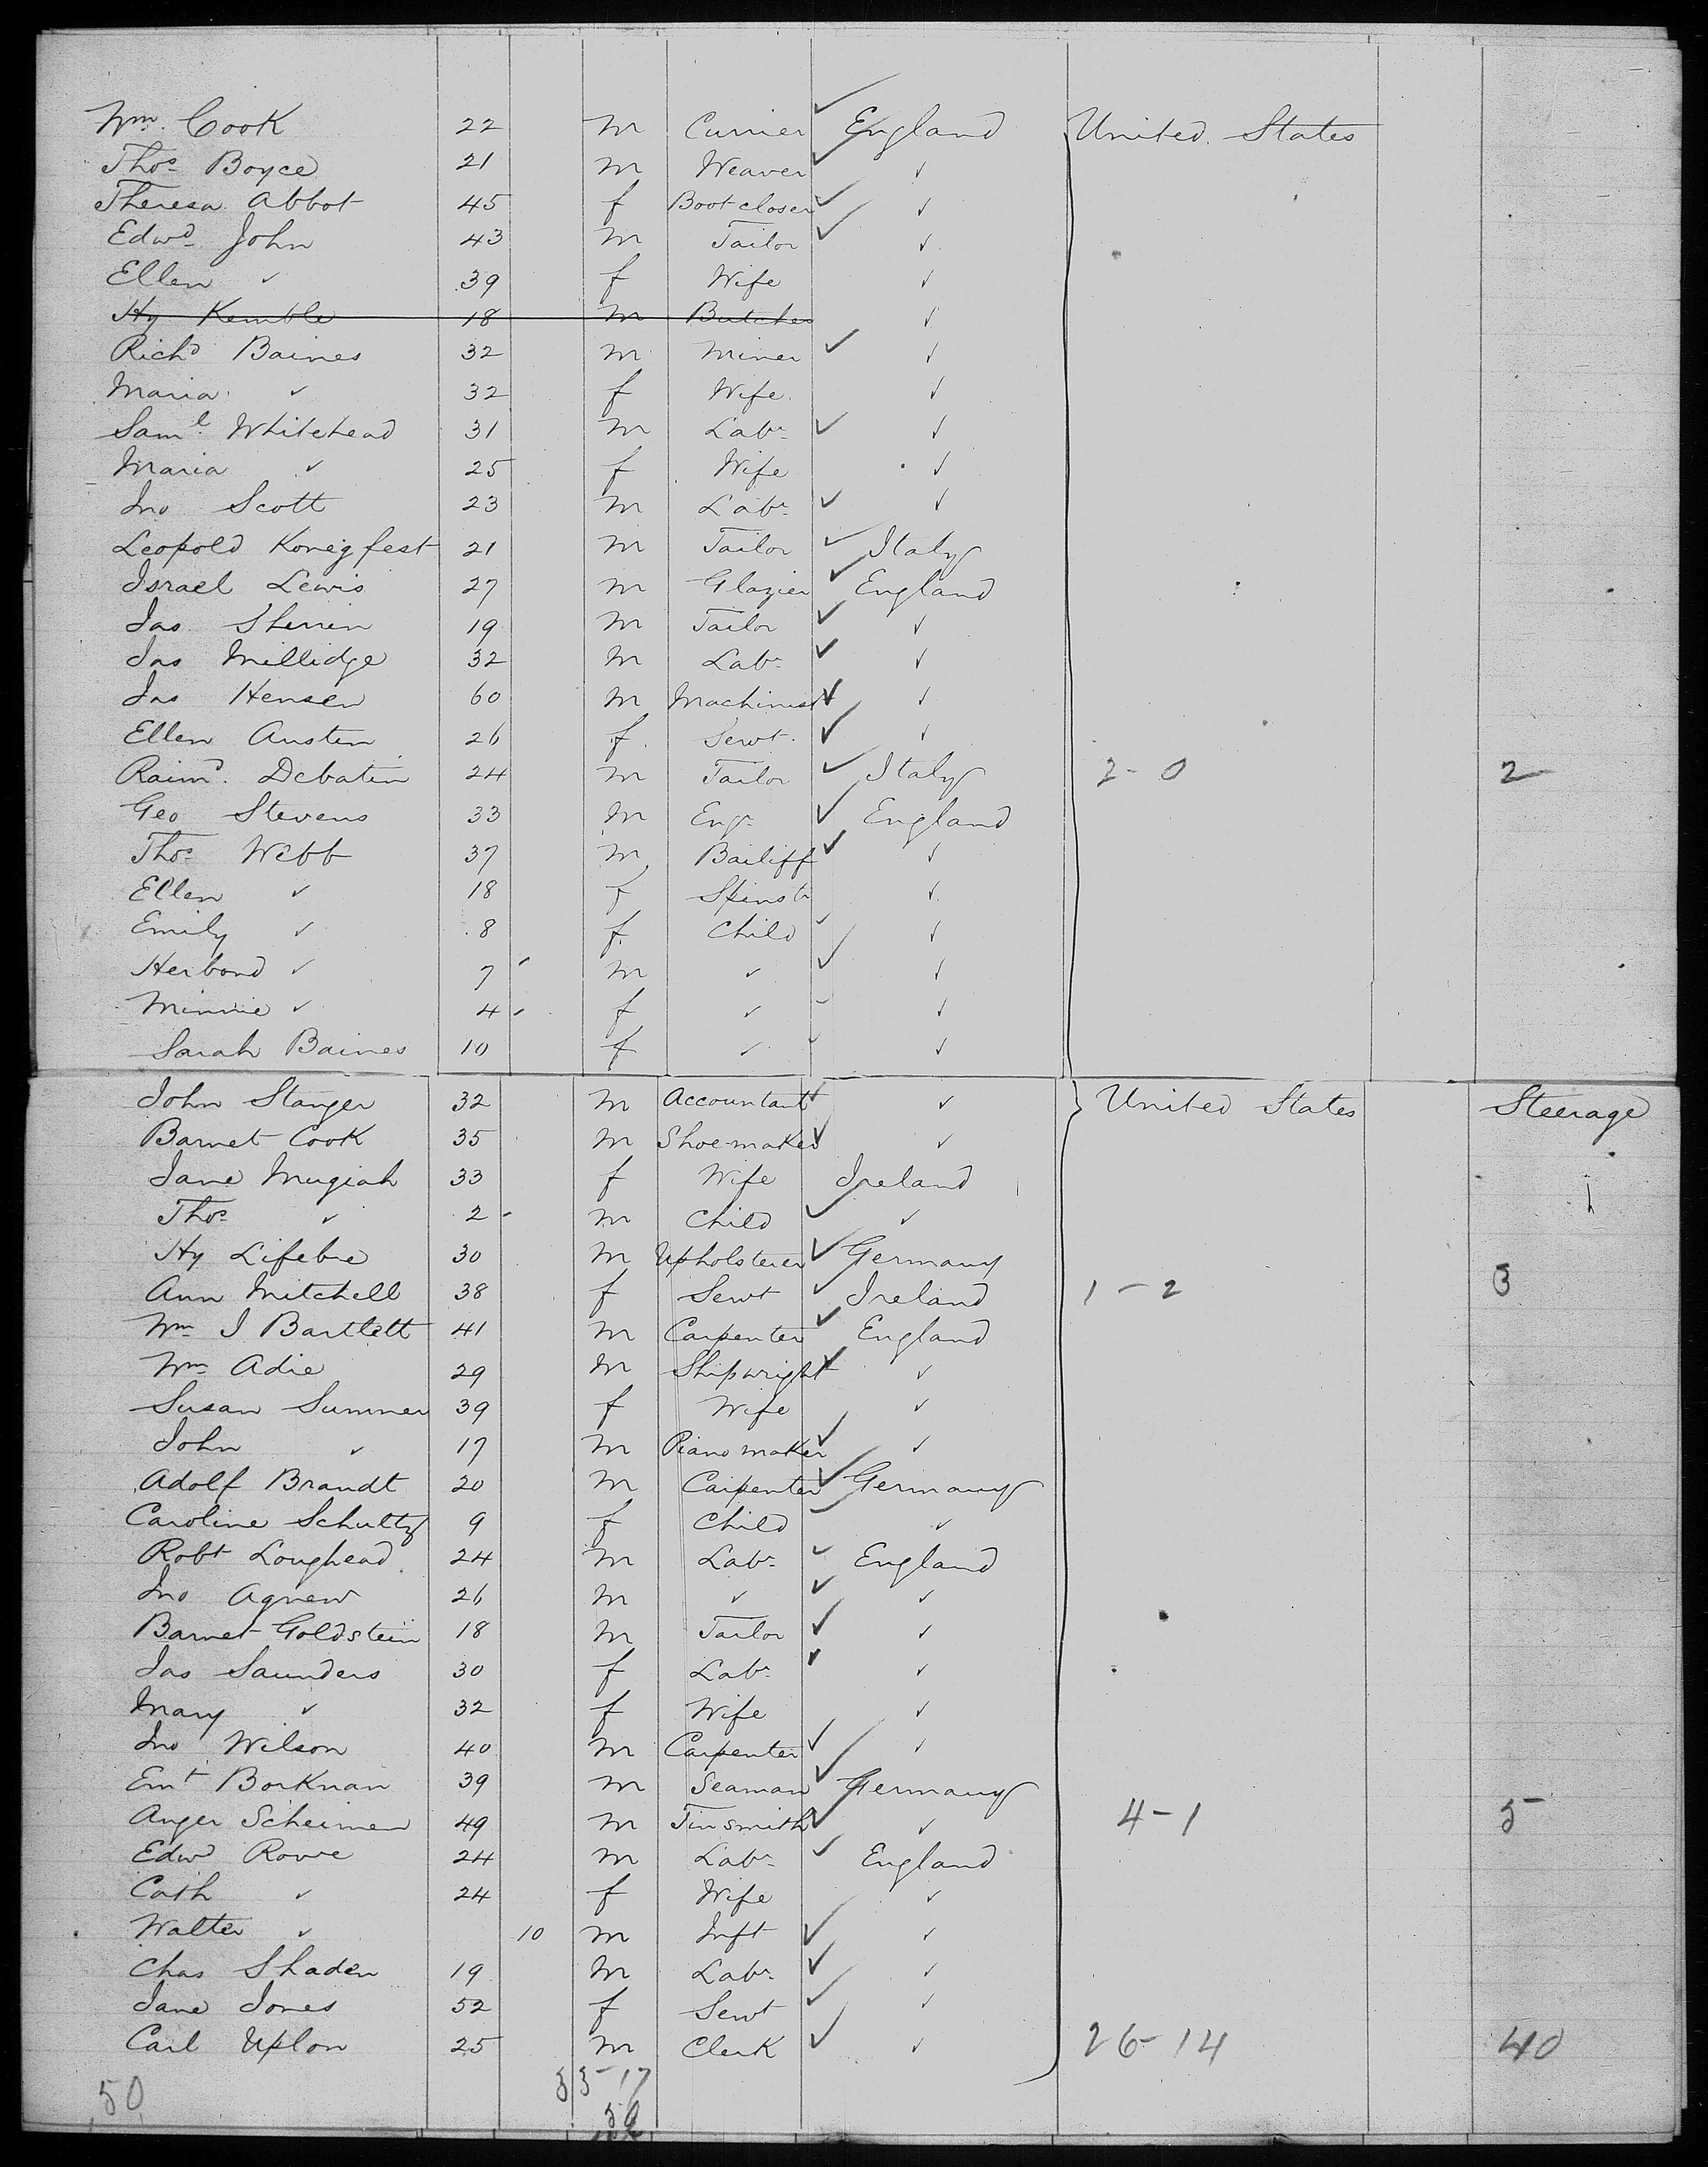 Wm. Cook 22 m Currier England United States
Thos. Boyce 21 m Weaver ✓
Theresa Abbot 45 f Boot closer ✓
Edwd. John 43 m Tailor ✓
Ellen ✓ 39 f Wife ✓
Hy Kemble 18 m Butcher ✓
Richd Baines 32 m Miner ✓
Maria ✓ 32 f Wife ✓
Saml. Whitehead 31 m Labr. ✓
Maria ✓ 25 f Wife ✓
Jno Scott 23 m Labr. ✓
Leopold Konigfest 21 m Tailor Italy
Israel Lewis 27 m Glazier England
Jas Sherrin 19 m Tailor ✓
Jas Millidge 32 m Labr. ✓
Jas Hensen 60 m Machinist ✓
Ellen Austin 26 f Servt. ✓
Raimd. Debatin 24 m Tailor Italy 2-0 2
Geo Stevens 33 m Engr. England
Thos. Webb 37 m Bailiff ✓
Ellen ✓ 18 f Spinstr ✓
Emily ✓ 8 f Child ✓
Herbond ✓ 7 m ✓ ✓
Minnie ✓ 4 f ✓ ✓
Sarah Baines 10 f ✓ ✓
John Stanger 32 m Accountant ✓ United States Steerage
Barnet Cook 35 m Shoemaker ✓
Jane Mugiah 33 f Wife Ireland 1
Thos. ✓ 2 m Child ✓
Hy Lifebre 30 m Upholsterer Germany
Ann Mitchell 38 f Servt Ireland 1-2 3
Wm I Bartlett 41 m Carpenter England
Wm. Adie 29 m Shipwright ✓
Susan Summer 39 f Wife ✓
John ✓ 17 m Piano maker ✓
Adolf Brandt 20 m Carpenter Germany
Caroline Schultz 9 f Child ✓
Robt Loughead 24 m Labr. England
Jno Agnew 26 m ✓ ✓
Barnet Goldstein 18 m Tailor ✓
Jas Saunders 30 f Labr. ✓
Mary ✓ 32 f Wife ✓
Jno Wilson 40 m Carpenter ✓
Emt Borknan 39 m Seaman Germany
Anger Scheimen 49 m Tinsmith ✓ 4-1 5
Edwd Rowe 24 m Labr. England
Cath ✓ 24 f Wife ✓
Walter ✓ 10 m Inft ✓
Chas Shaden 19 m Labr. ✓
Jane Jones 52 f Servt ✓
Carl Uplon 25 m Clerk ✓ 26-14 40
33-17
50 50